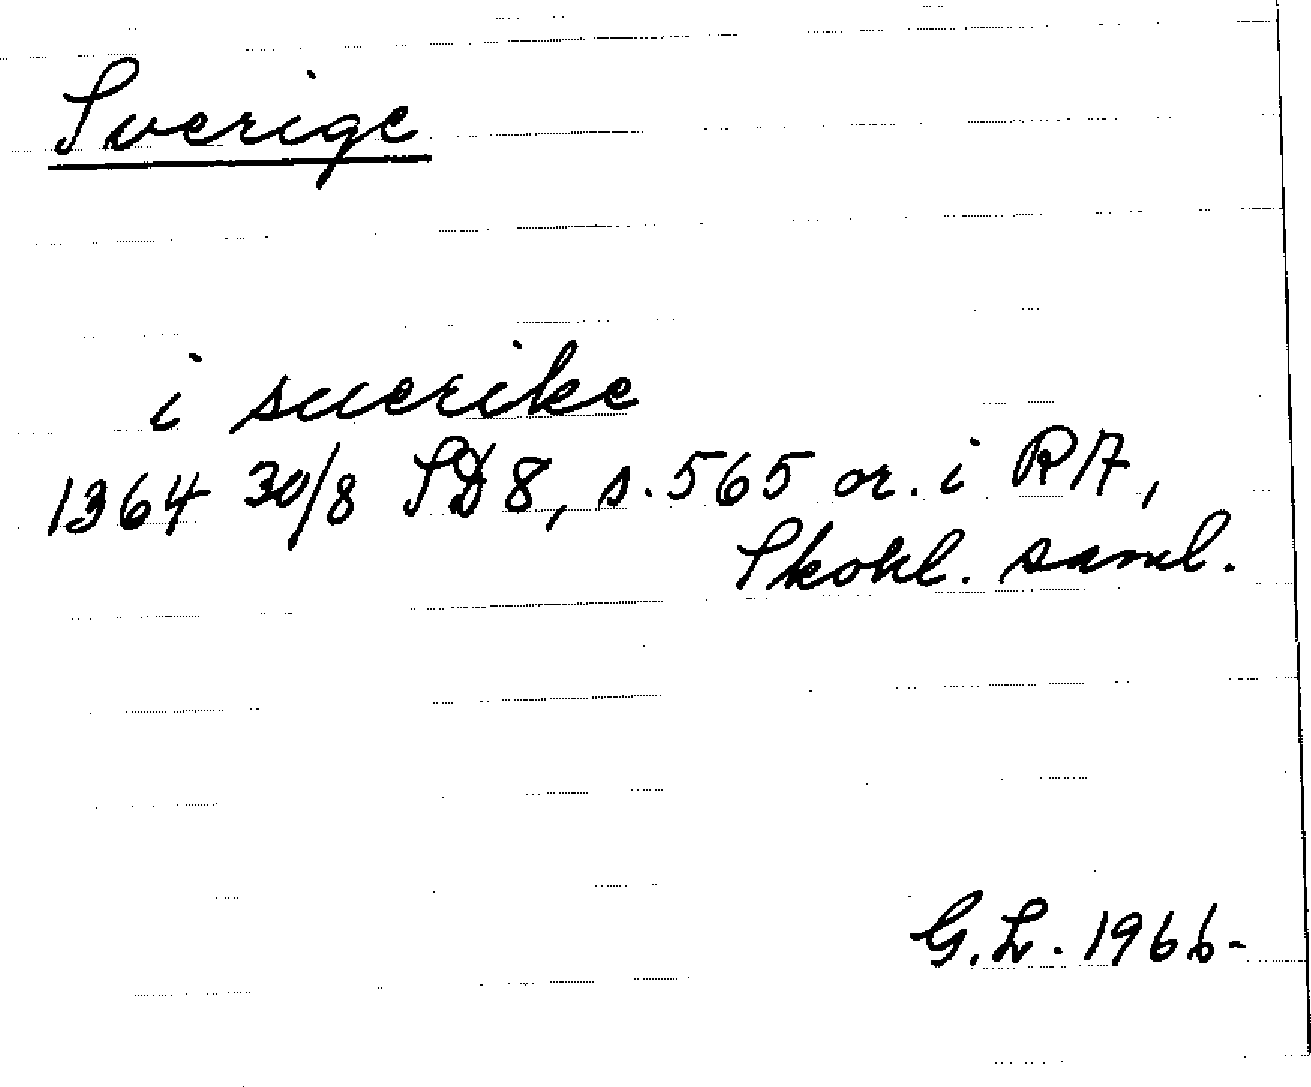 Sverige
i suerike
1364 30/8 SD 8, s. 565 or. i RA,
Skokl. saml.
G. L. 1966-